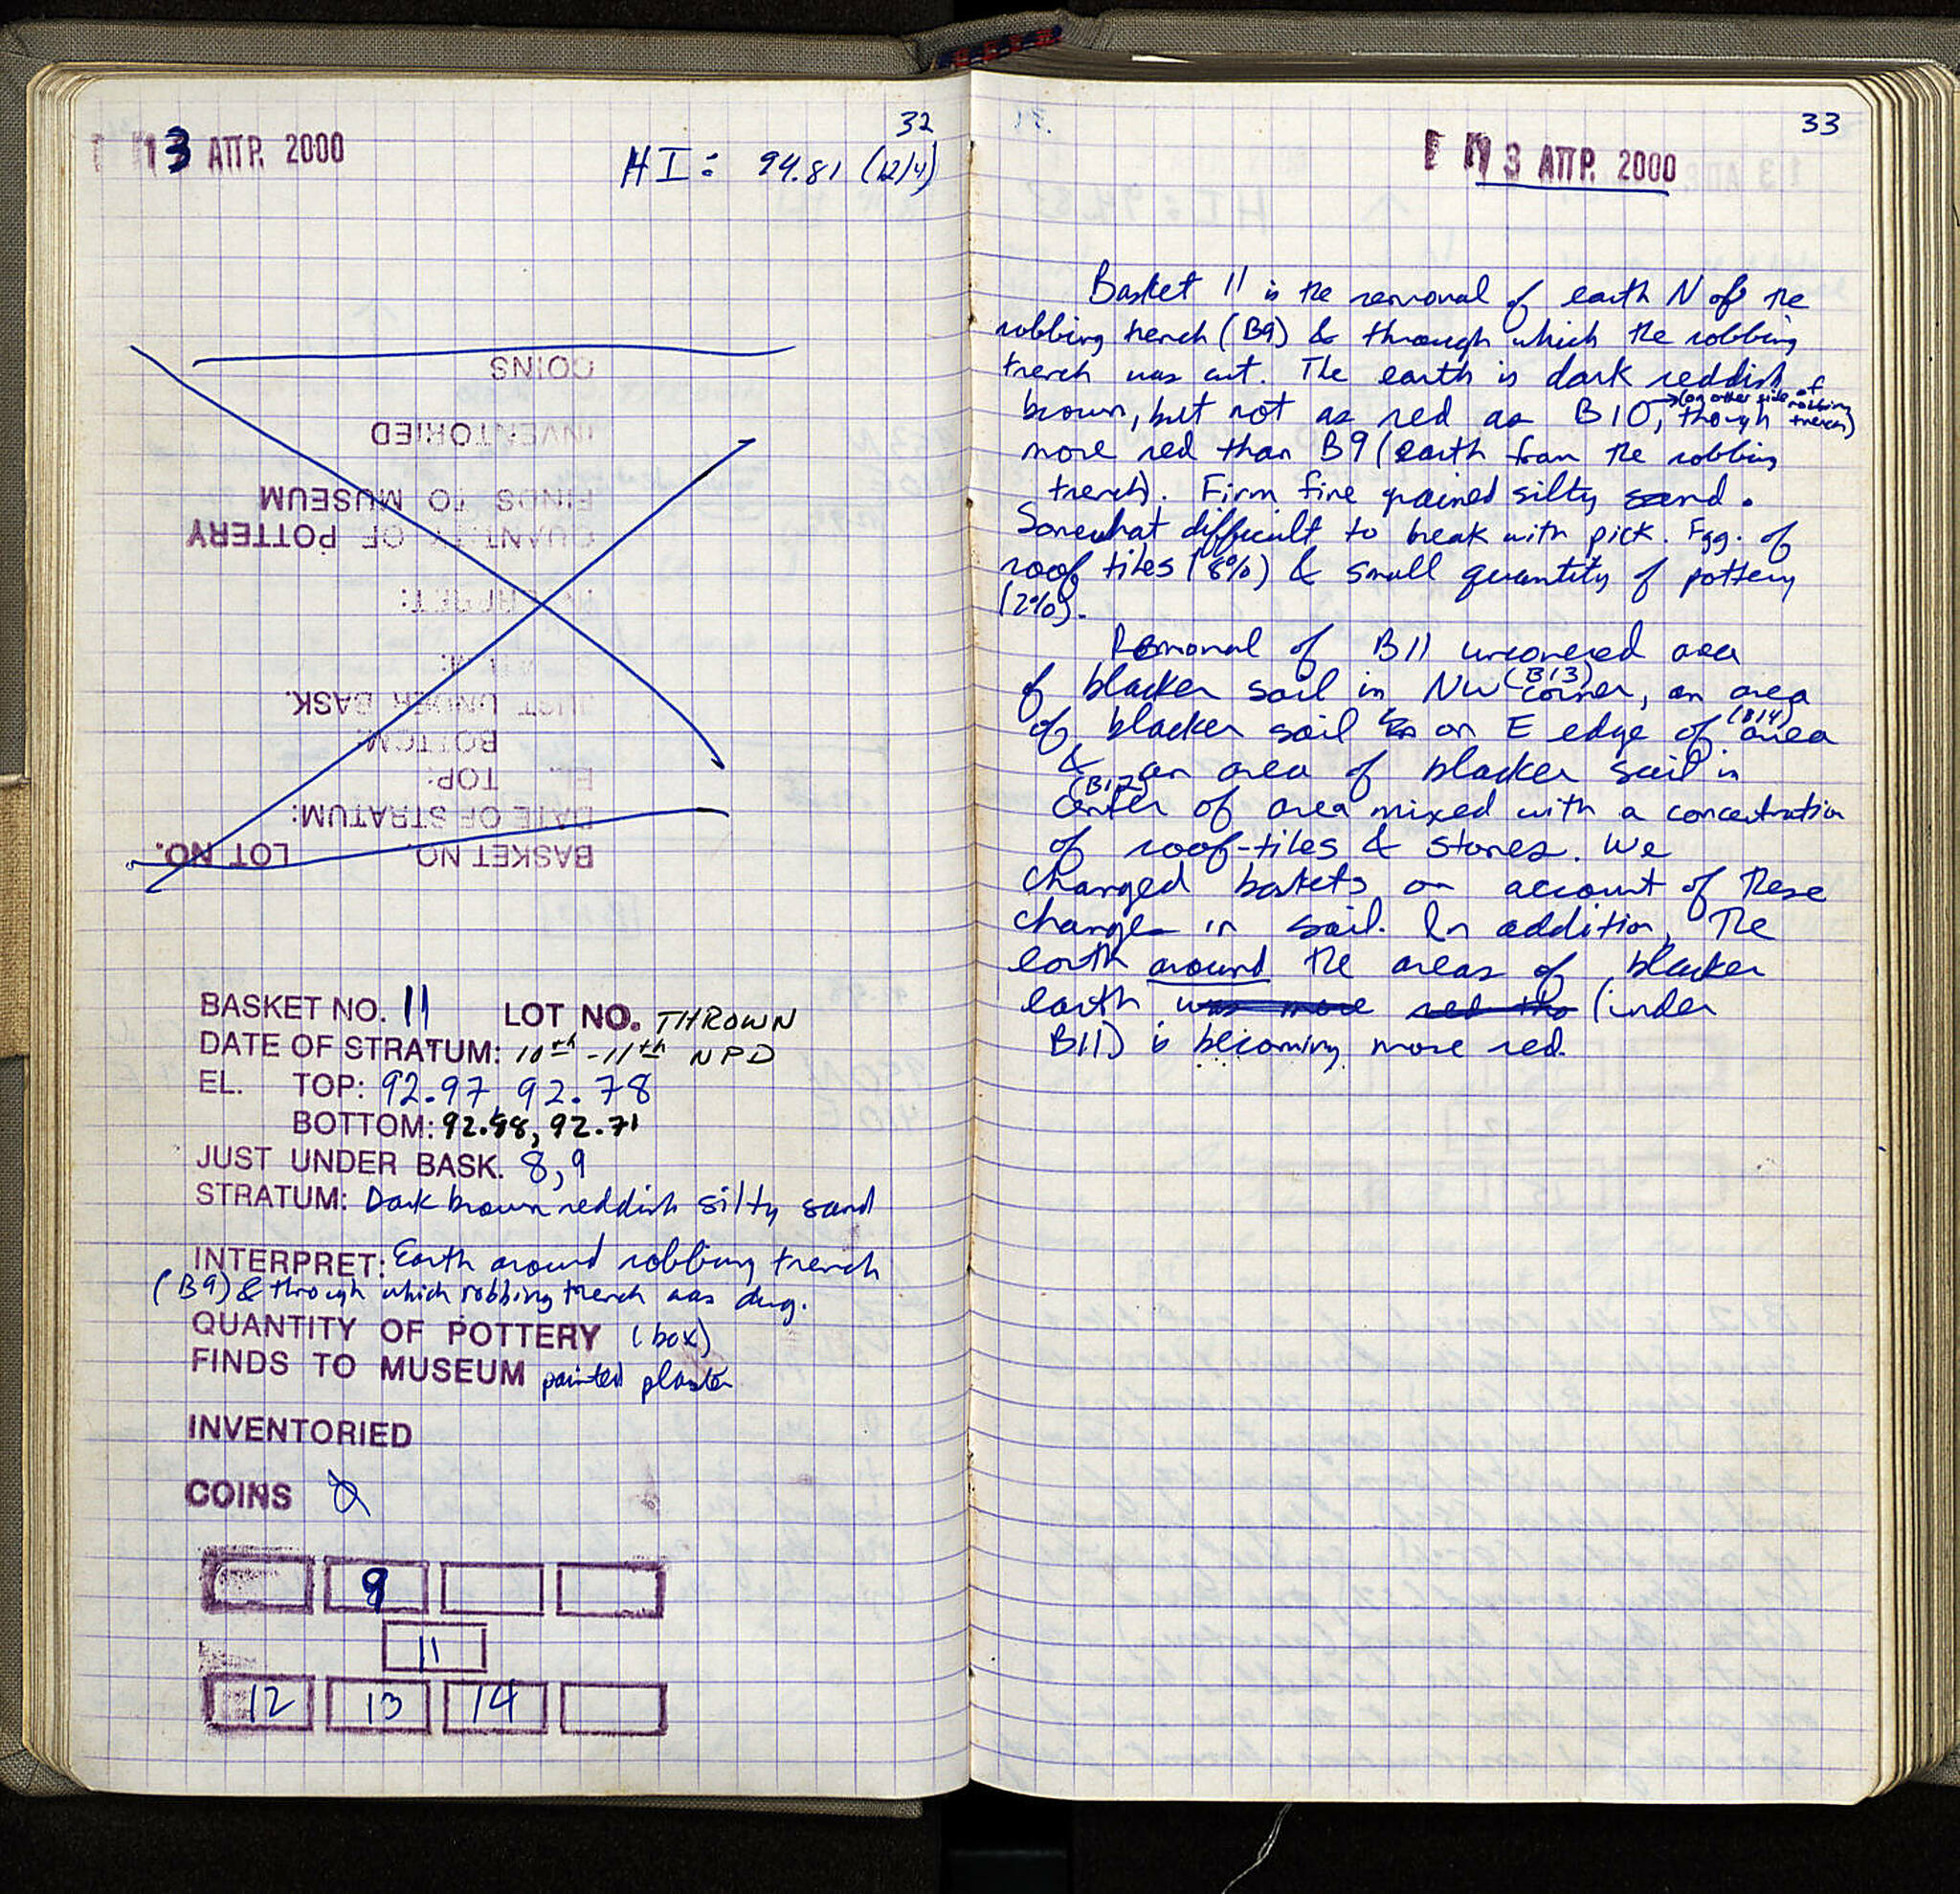 32
13 ΑΠΡ. 2000
HI: 94.81 (12/4)
COINS
INVENTORIED
FINDS TO MUSEUM
QUANTITY OF POTTERY
JUST UNDER BASK.
BOTTOM:
EL. TOP:
DATE OF STRATUM:
BASKET NO. LOT NO.
BASKET NO. 11 LOT NO. THROWN
DATE OF STRATUM: 10th-11th NPD
EL. TOP: 92.97, 92.78
BOTTOM: 92.98, 92.71
JUST UNDER BASK. 8,9
STRATUM: Dark brown reddish silty sand
INTERPRET: Earth around robbing trench
(B9) & through which robbing trench was dug.
QUANTITY OF POTTERY (box)
FINDS TO MUSEUM painted plaster
INVENTORIED
COINS Ø
9
11
12 13 14
33
13 ΑΠΡ. 2000
Basket 11 is the removal of earth N of the
robbing trench (B9) & through which the robbing
trench was cut. The earth is dark reddish
brown, but not as red as B10, (on other side of robbing trench) though
more red than B9 (earth from the robbing
trench). Firm fine grained silty sand.
Somewhat difficult to break with pick. Fgg. of
roof tiles (8%) & small quantity of pottery
(2%).
Removal of B11 uncovered area
of blacker soil in NW (B13) corner, an area
of blacker soil on E edge of (B14) area
& an area of blacker soil in
(B12) center of area mixed with a concentration
of roof-tiles & stones. We
changed baskets on account of these
changes in soil. In addition, the
earth around the areas of blacker
earth was more red tha (under
B11) is becoming more red.